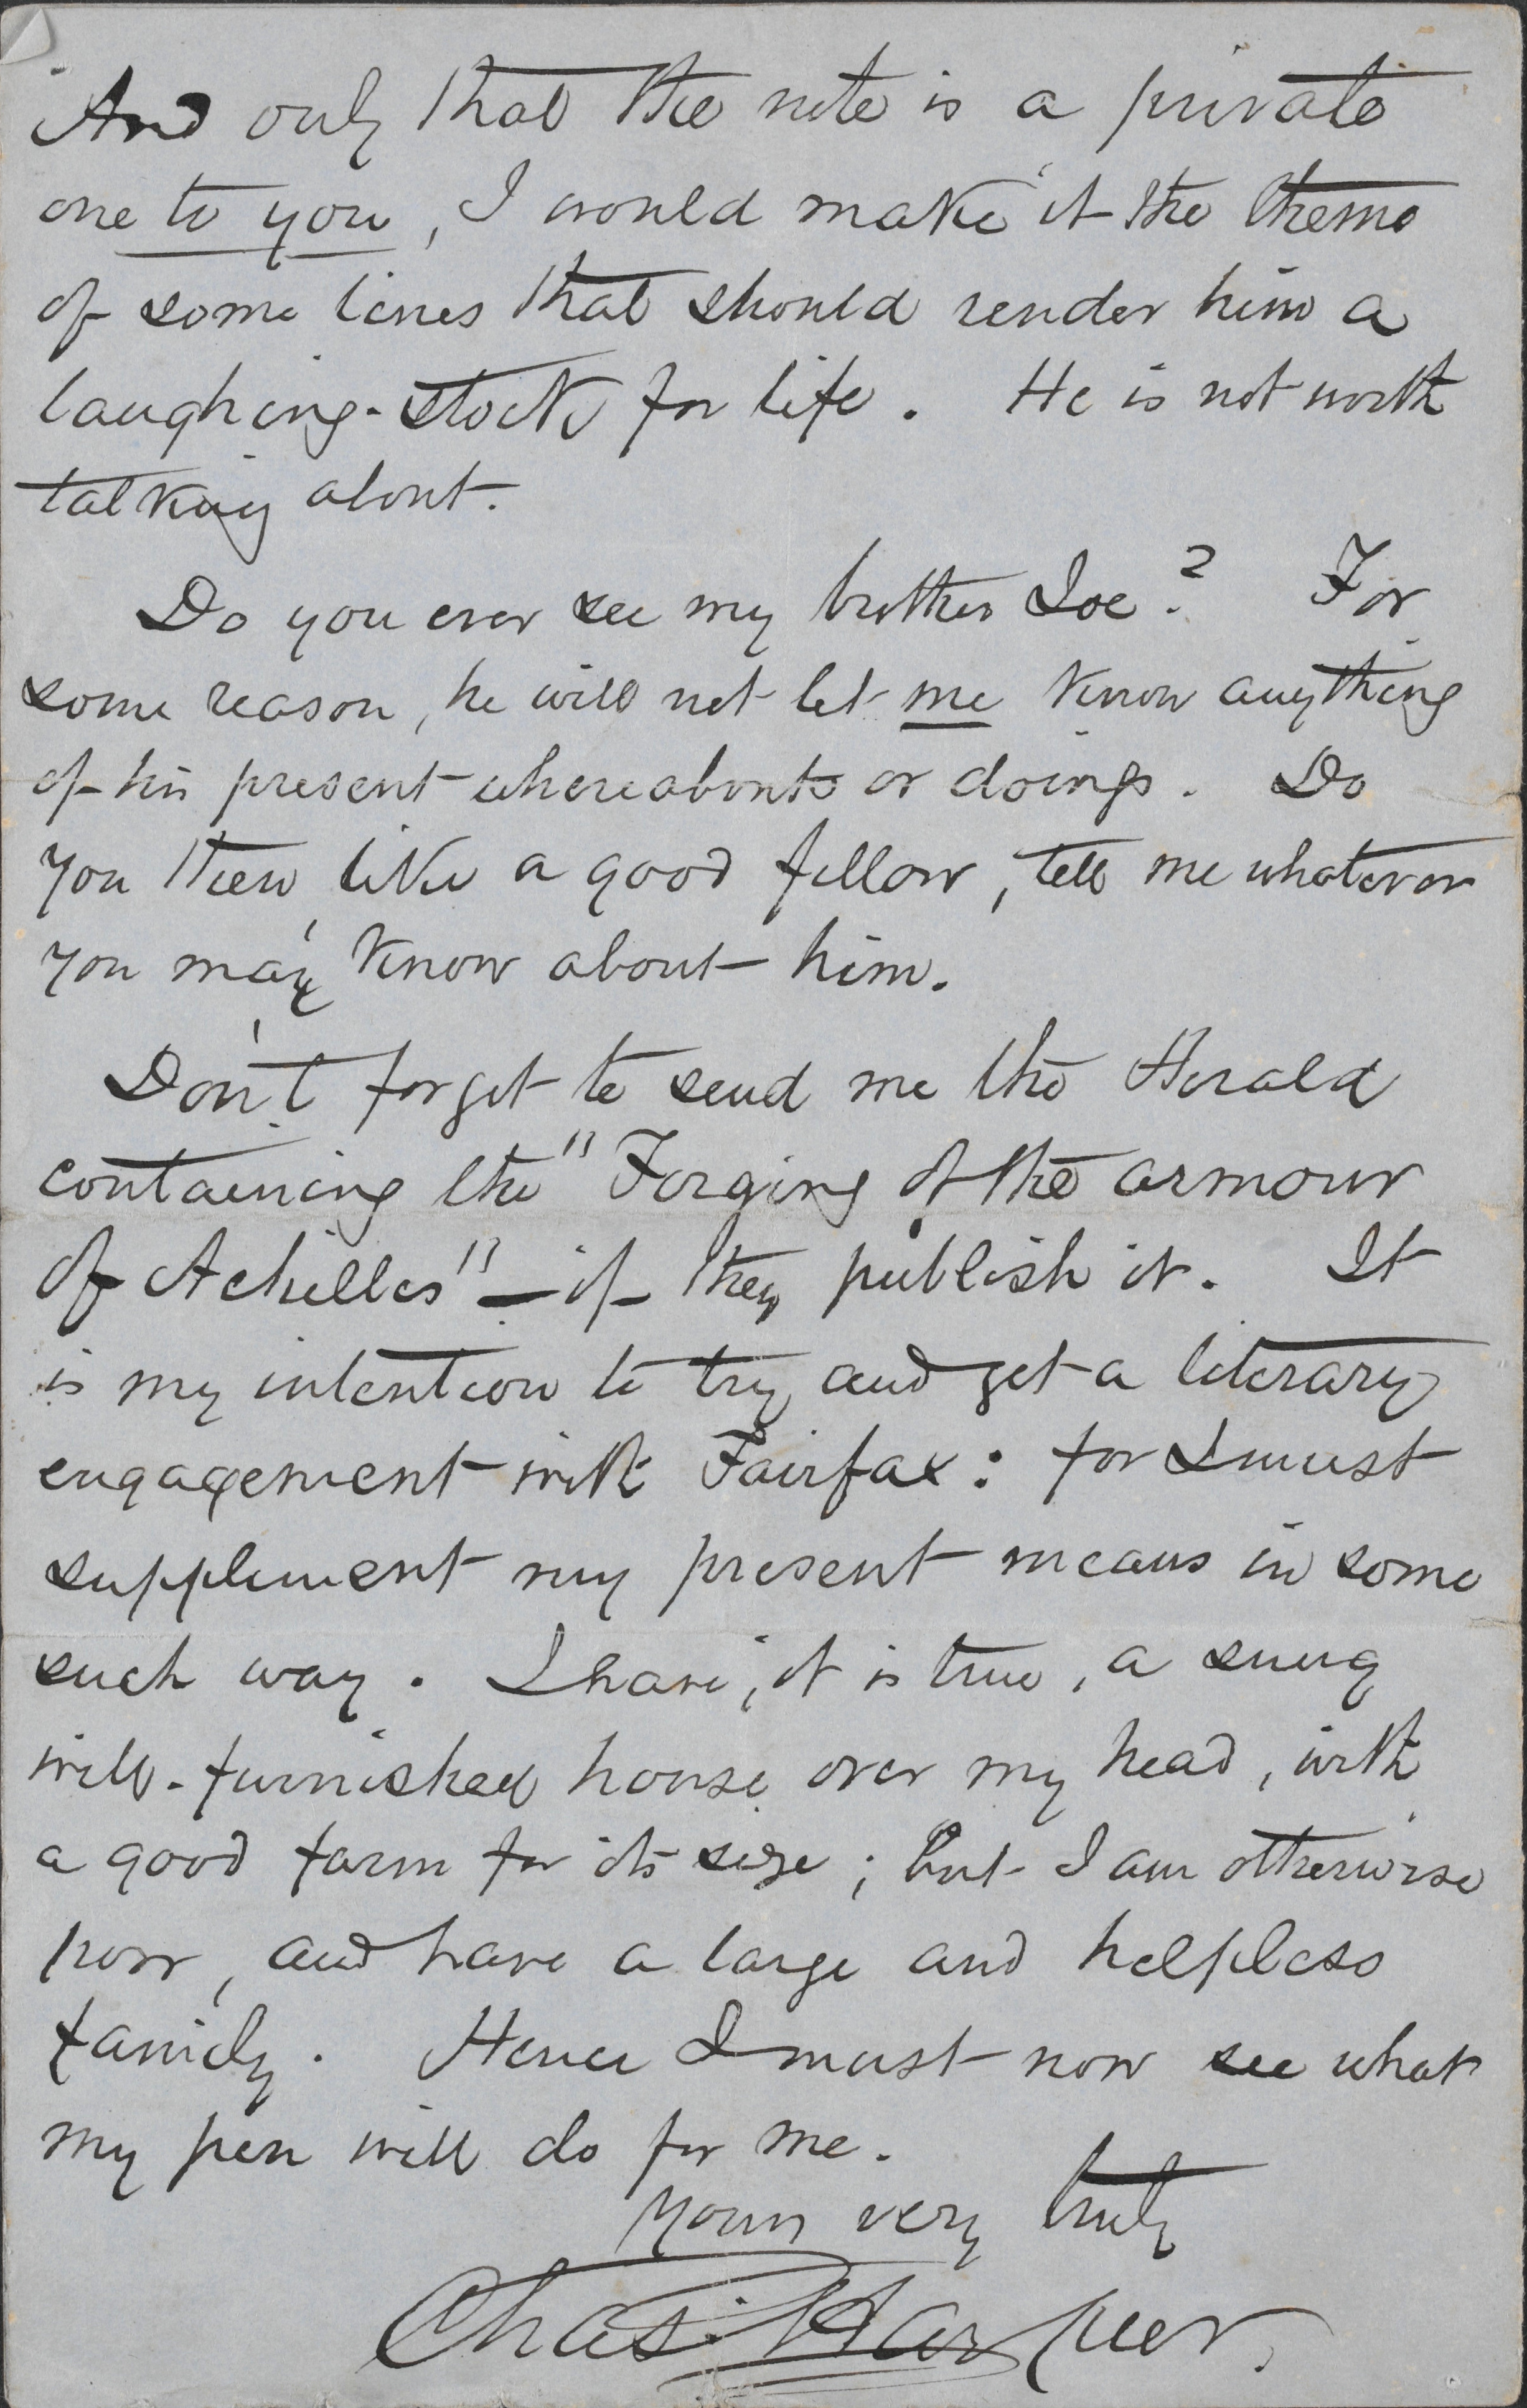 And only that the note is a private
one to you, I would make it the theme
of some lines that should render him a
laughing-stock for life. He is not worth
talking about.
Do you ever see my brother Joe? For
some reason, he will not let me know anything
of his present whereabouts or doings. Do
you then like a good fellow, tell me whatever
you may know about him.
Don't forget to send me the Herald
containing the "Forging of the armour
of Achilles" — if they publish it. It
is my intention to try and get a literary
engagement with Fairfax: for I must
supplement my present means in some
such way. I have, it is true, a snug
well-furnished house over my head, with
a good farm for its size; but I am otherwise
poor, and have a large and helpless
family. Hence I must now see what
my pen will do for me.
Yours very truly
Chas. Harpur.